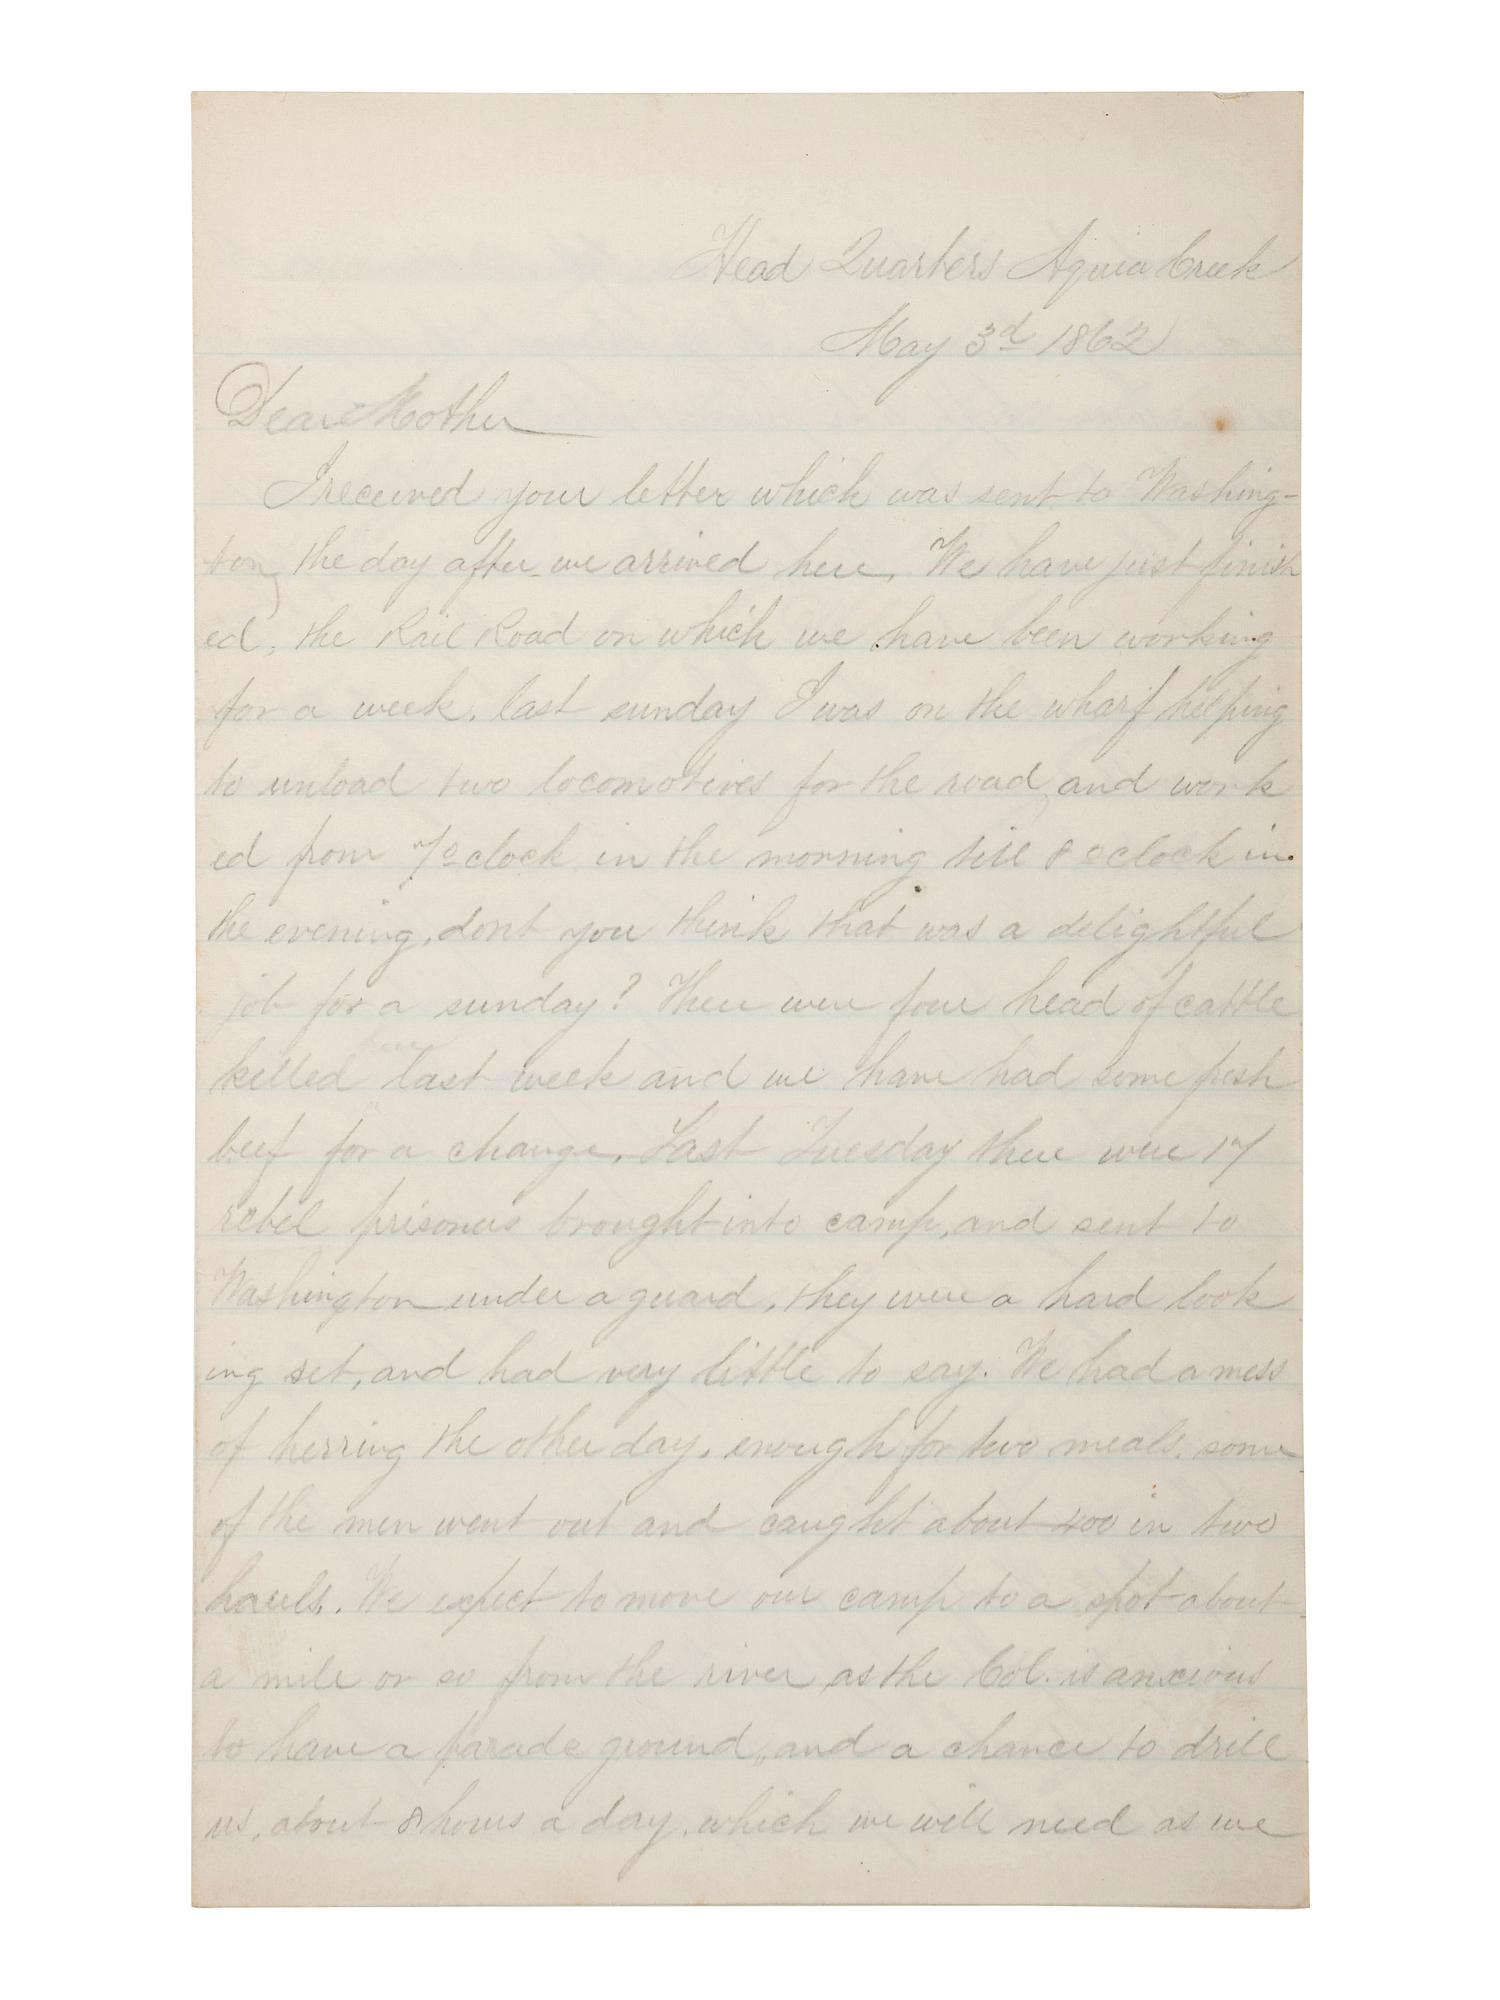 Head Quarters Aquia Creek
May 3d 1862
Dear Mother
I received your letter which was sent to Washing-
ton, the day after we arrived here, We have just finish
ed, the Rail Road on which we have been working
for a week, last sunday I was on the wharf helping
to unload two locomotives for the road, and work
ed from 7 oclock in the morning till 8 oclock in
the evening, dont you think that was a delightful
job for a sunday? There were four head of cattle
here
killed last week and we have had some fresh
beef for a change, Last Tuesday there were 17
rebel prisoners brought into camp, and sent to
Washington under a guard, they were a hard look
ing set, and had very little to say. We had a mess
of herring the other day, enough for two meals, some
of the men went out and caught about 400 in two
hauls,. We expect to move our camp to a spot about
a mile or so from the river, as the Col. is anxious
to have a parade ground, and a chance to drill
us, about 8 hours a day, which we will need as we